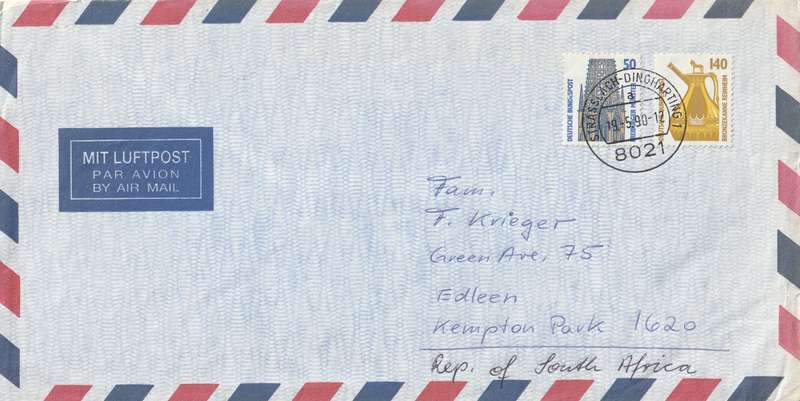 50
140
DEUTSCHE BUNDESPOST
BRONZEKANNE REINHEIM
STRASSLACH-DINGHARTING 1
a
19.-5.90-12
8021
MIT LUFTPOST
PAR AVION
BY AIR MAIL
Fam.
F. Krieger
Green Ave. 75
Edleen
Kempton Park 1620
Rep. of South Africa